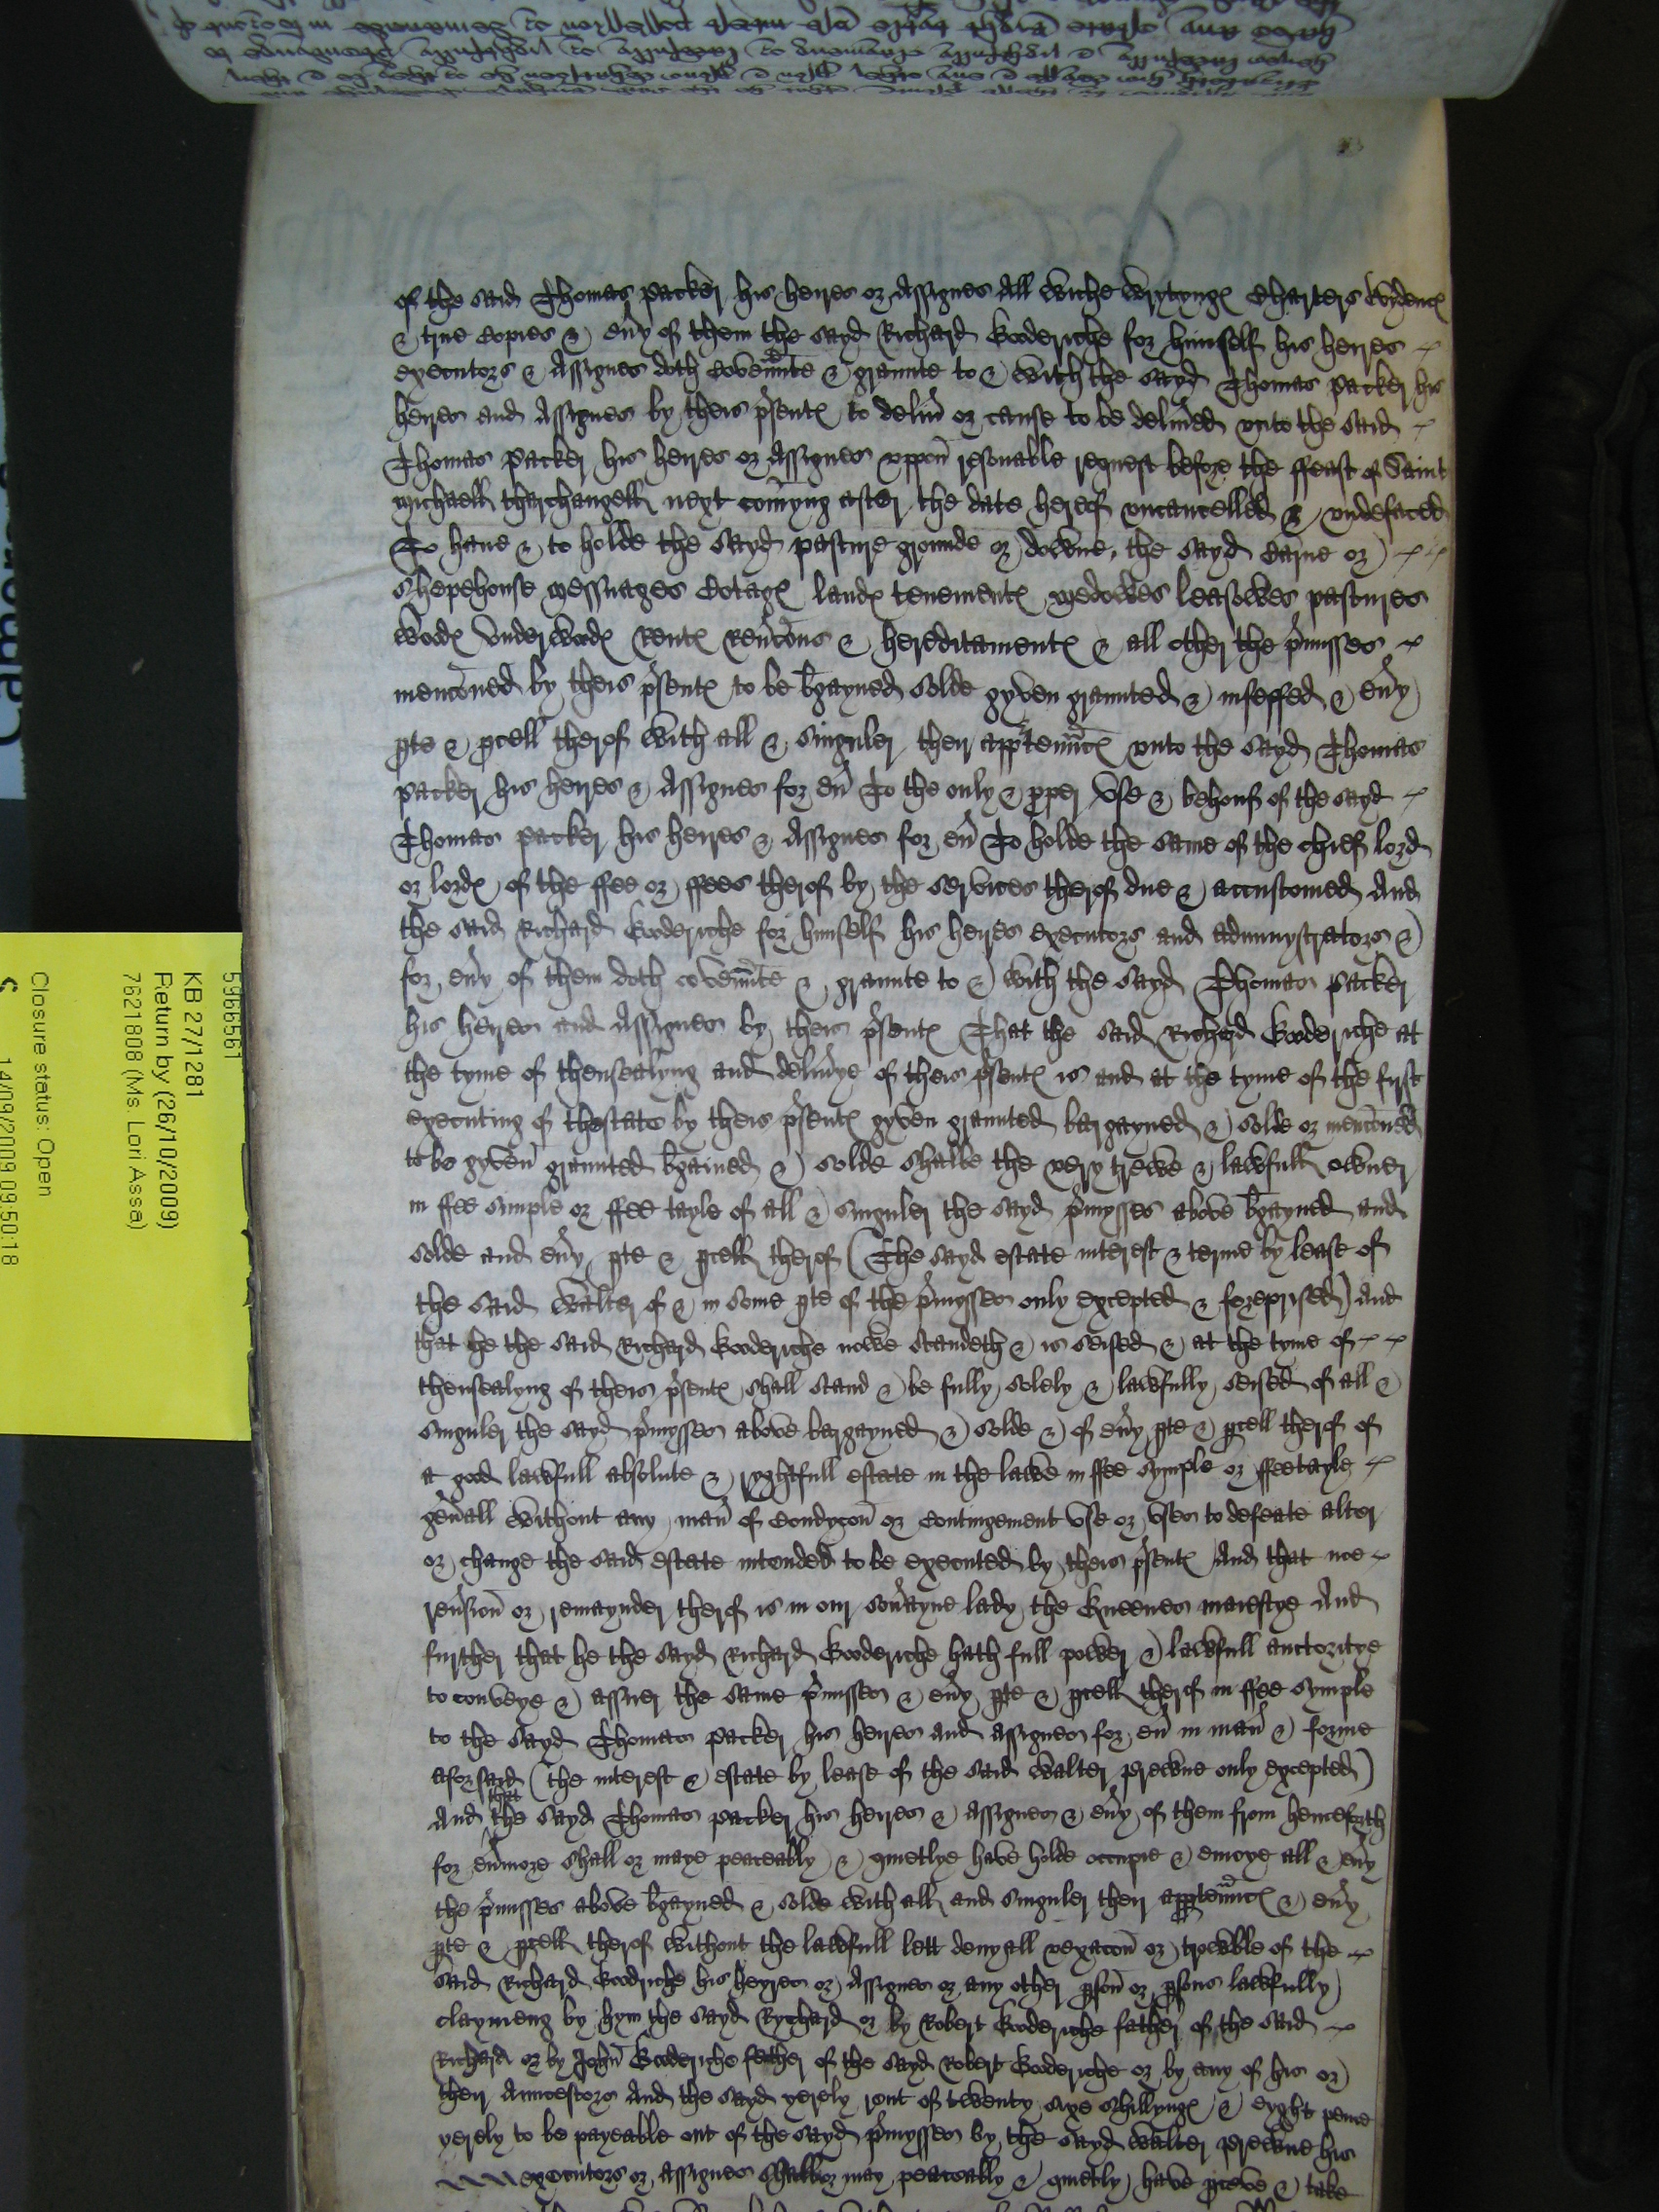 of the said Thomas Packer his heires or Assignes All wiche wrytyngꝭ Charters Evydencꝭ
& true Copies & eṽy of them the sayd Richard Gooderiche for himself his heires
executors & Assignes doth Covenñte & graunte to & with the sayd Thomas Packer his
heires and Assignes by theis p̃sentꝭ to deliṽ or cause to be deliṽed vnto the said
Thomas Packer his heires or Assignes vppon̄ resonable request before the ffeast of Saint
Michaell tharchangell next com̄yng after the date herof vncancelled & vndefaced
To have & to holde the sayd pasture grounde or downe, the sayd Barne or
Shepehouse Messuages Cotagꝭ landꝭ tenementꝭ Medowes leasowes pastures
woodꝭ Underwoodꝭ Rentꝭ Reṽcõns & hereditamentꝭ & all other the p̃misses
mencõned by theis p̃sentꝭ to be b̃gayned solde gyven graunted & infeffed & eṽy
ꝑte & ꝑcell therof with all & singuler their apptenñcꝭ vnto the sayd Thomas
Packer his heires & Assignes for eṽ To the only & ꝓper Use & behouf of the sayd
Thomas Packer his heires & Assignes for eṽ To holde the same of the chief lord
or lordꝭ of the ffee or ffees therof by the services therof due & accustomed And
the said Richard Gooderiche for himself his heires executors and admynystrators &
for eṽy of them doth covenñte & graunte to & with the sayd Thomas Packer
his heires and Assignes by theis p̃sentꝭ That the said Richard Gooderiche at
the tyme of thensealyng and deliṽye of theis p̃sentꝭ is and at the tyme of the first
executing of thestate by theis p̃sentꝭ gyven graunted bargayned & solde or mencõned
to be gyven graunted b̃gained & solde shalbe the very trewe & lawfull owner
in ffee simple or ffee tayle of all & singuler the sayd p̃mysses above b̃gayned and
solde and eṽy ꝑte & ꝑcell therof (The sayd estate interest & terme by lease of
the said Walter of & in some ꝑte of the p̃mysses only excepted & foreprised) And
that he the said Richard Gooderiche nowe standeth & is seised & at the tyme of
thensealyng of theis p̃sentꝭ shall stand & be fully solely & lawfully seised of all &
singuler the sayd p̃mysses above bargayned & solde & of eṽy ꝑte & ꝑcell therof of
a good lawfull absolute & ryghtfull estate in the lawe in ffee symple or ffeetayle
geñall without any mañ of Condycõn or Contingement Use or Uses to defeate alter
or change the said estate intended to be executed by theis p̃sentꝭ And that noe
reṽsion or remaynder therof is in our soṽayne lady the Queenes maiestye And
further that he the sayd Richard Gooderiche hath full power & lawfull auctoritye
to conveye & assuer the same p̃misses & eṽy ꝑte & ꝑcell therof in ffee symple
to the sayd Thomas Packer his heires and assignes for eṽ in mañ & forme
aforsaid (the interest & estate by lease of the said Walter only excepted)
And that the sayd Thomas Packer his heires & Assignes & eṽy of them from henceforth
for eṽmore shall or maye peaceably & quietlye have holde occupie & enioye all & eṽy
the p̃misses above b̃gayned & solde with all and singuler their apptenñcꝭ & eṽy
ꝑte & ꝑcell therof without the lawfull lett denyall vexacõn or trowble of the
said Richard Goodriche his heyres or Assignes or any other ꝑson̄ or ꝑsons lawfully
claymeng by hym the sayd Rychard or by Robert Gooderiche father of the said
Richard or by John̄ Gooderiche father of the sayd Robert Gooderiche or by any of his or
their Auncestors And the sayd yerely rent of twenty sixe shillyngꝭ & eyght pence
yerely to be payeable out of the sayd p̃mysses by the sayd Walter his
executors or assignes shalbe or may peaceably & quietly have ꝑceve & take
59666561
KB 27/1281
Return by (26/10/2009)
7621808 (Ms. Lori Assa)
Closure status: Open
14/09/2009 09:50:18
Camera